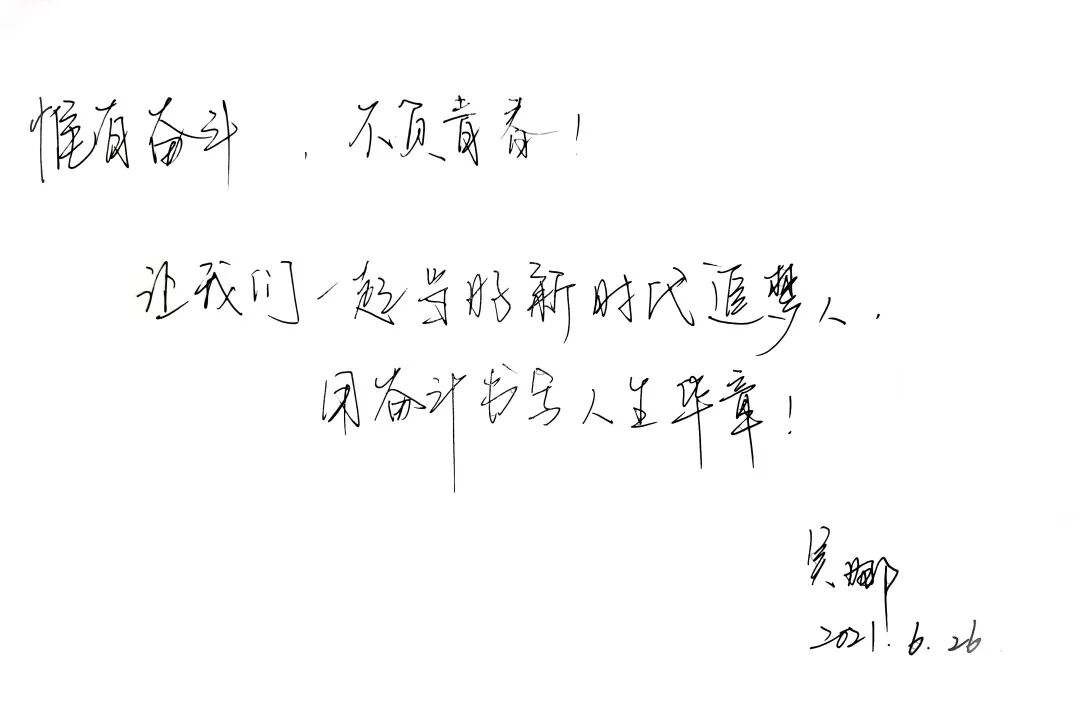 惟有奋斗，不负青春！
让我们一起争做新时代追梦人，
用奋斗书写人生华章！
吴娜
2021.6.26